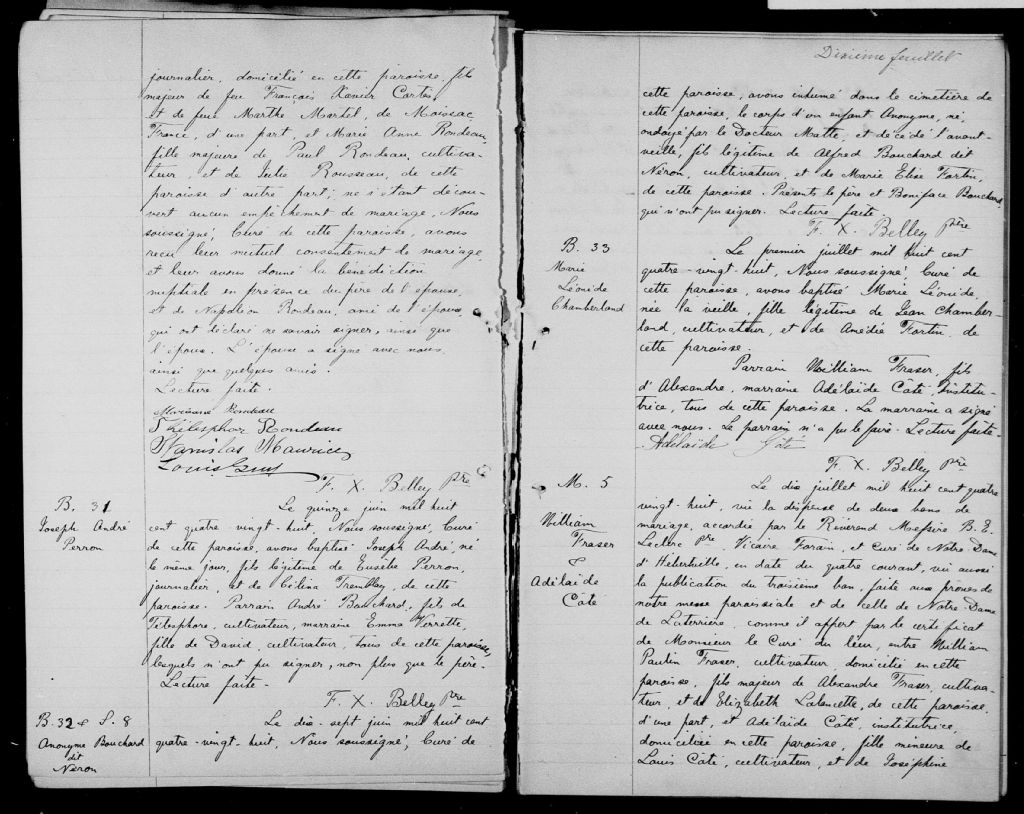 journalier, domicilié en cette paroisse, fils
majeur de feu François Xavier Cartes
et de feue Marthe Martel, de Moissac,
France, d'une part, et Marie Anne Rondeau,
fille majeure de Paul Rondeau, cultiva-
teur, et de Julie Rousseau, de cette
paroisse d'autre part; ne s'étant décou-
vert aucun empêchement de mariage, Nous
soussigné, Curé de cette paroisse, avons
reçu leur mutuel consentement de mariage,
et leur avons donné la bénédiction
nuptiale en présence du père de l'épouse,
et de Napoléon Rondeau, ami de l'époux
qui ont déclaré ne savoir signer, ainsi que
l'époux. L'épouse a signé avec nous
ainsi que quelques amis.
Lecture faite.
Rondeau
Télesphor Rondeau
Stanislas Maurice
Louis
F. X. Belley Ptre
B. 31
Joseph André
Perron
Le quinze juin mil huit
cent quatre-vingt-huit, Nous soussigné, Curé
de cette paroisse, avons baptisé Joseph André, né
le même jour, fils légitime de Eusèbe Perron,
journalier, et de Célina Trembley, de cette
paroisse. Parrain André Bouchard, fils de
Télesphore, cultivateur, marraine Emma Verrette,
fille de David, cultivateur, tous de cette paroisse,
lesquels n'ont pu signer, non plus que le père.
Lecture faite.
F. X. Belley Ptre
B. 32 & S. 8
Anonyme Bouchard
dit
Néron
Le dix-sept juin mil huit cent
quatre-vingt-huit, Nous soussigné, Curé de
Dixième feuillet
cette paroisse, avons inhumé dans le cimetière de
cette paroisse, le corps d'un enfant Anonyme, né,
ondoyé par le Docteur Matte, et décédé l'avant-
veille, fils légitime de Alfred Bouchard dit
Néron, cultivateur, et de Marie Elise Fortin,
de cette paroisse. Présents le père et Boniface Bouchard,
qui n'ont pu signer. Lecture faite.
F. X. Belley Ptre
B. 33
Marie
Léonide
Chamberland
Le premier juillet mil huit cent
quatre-vingt-huit, Nous soussigné, Curé de
cette paroisse, avons baptisé Marie Léonide,
née la veille, fille légitime de Jean Chamber-
land, cultivateur, et de Amédie Fortin, de
cette paroisse.
Parrain William Fraser, fils
d'Alexandre, marraine Adélaïde Côté, Institu-
trice, tous de cette paroisse. La marraine a signé
avec nous. Le parrain n'a pu le faire. Lecture faite.
Adélaide Côté
F. X. Belley Ptre
M. 5
William
Fraser
&
Adélaïde
Côté
Le dix juillet mil huit cent quatre
vingt-huit, vu la dispense de deux bans de
mariage, accordée par le Révérend Messire B. E.
Leclerc Ptre, Vicaire Forain, et Curé de Notre-Dame
d'Hébertville, en date du quatre courant, vu aussi
la publication du troisième ban, faite aux prônes de
notre messe paroissiale et de celle de Notre-Dame
de Laterrière, comme il appert par le certificat
de Monsieur le Curé du lieu, entre William
Paulin Fraser, cultivateur, domicilié en cette
paroisse, fils majeur de Alexandre Fraser, cultiva-
teur, et de Elizabeth Lalancette, de cette paroisse,
d'une part, et Adélaïde Côté, institutrice,
domiciliée en cette paroisse, fille mineure de
Louis Côté, cultivateur, et de Joséphine